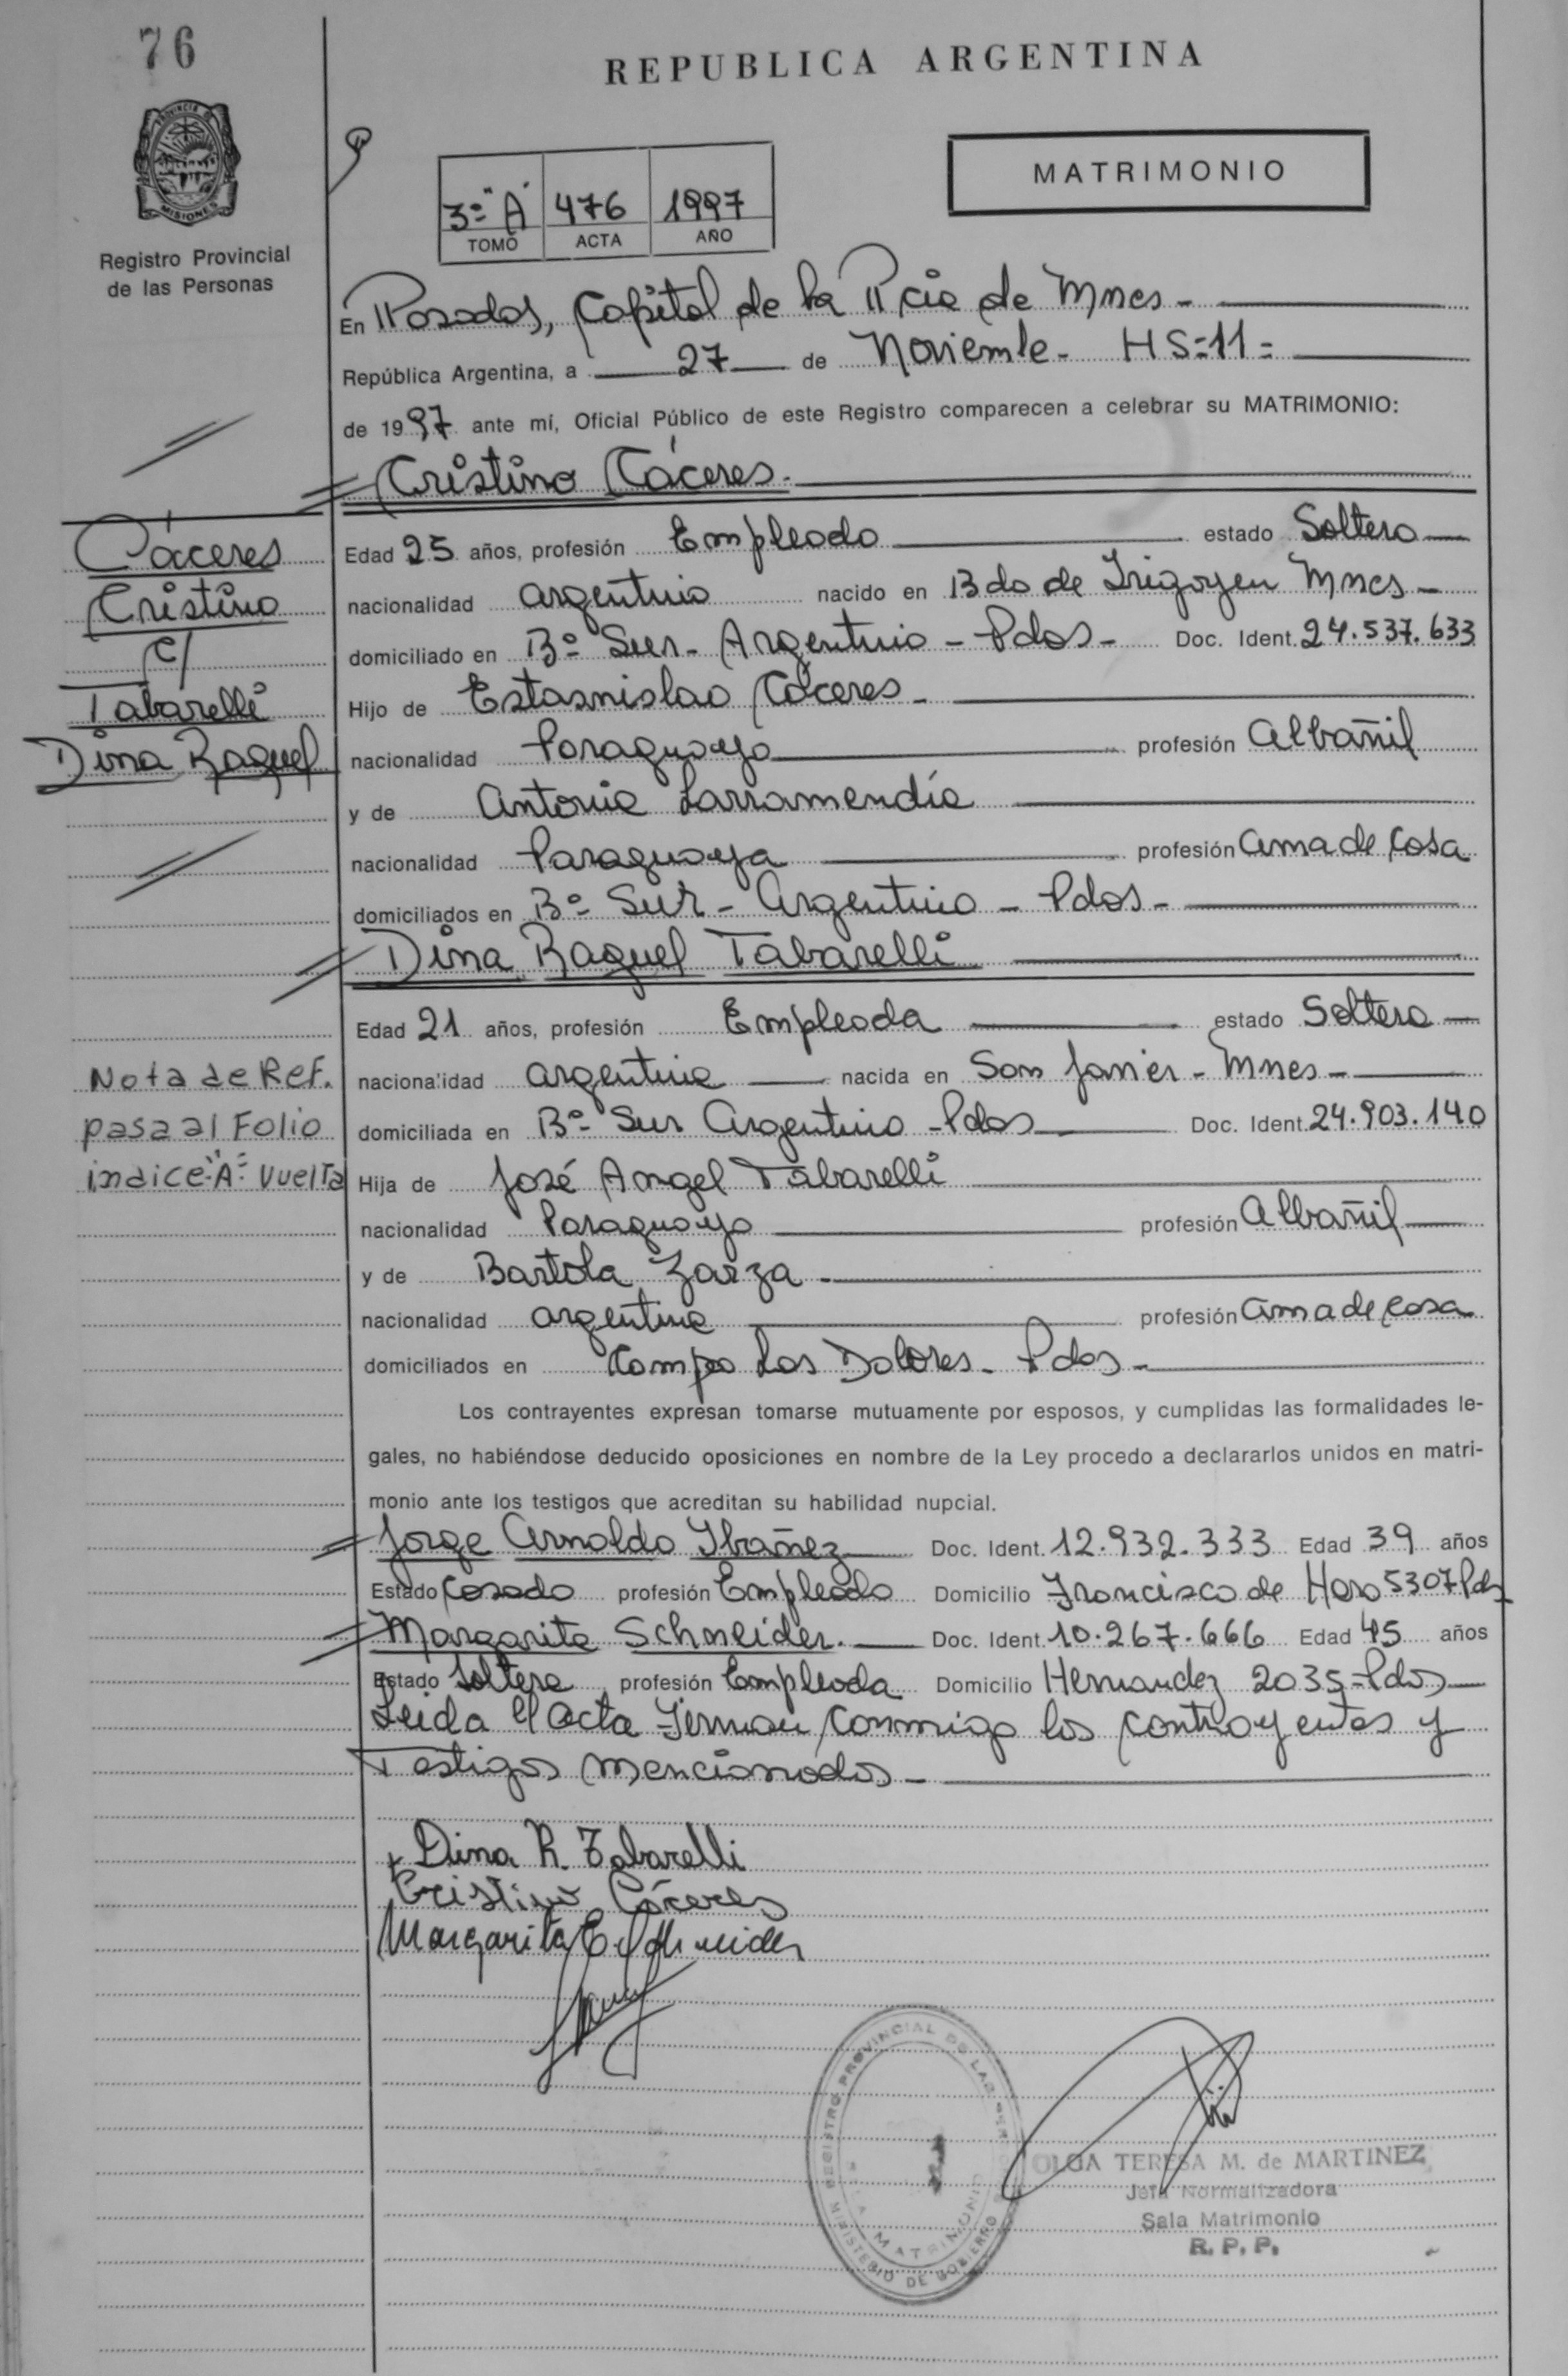 76
REPUBLICA ARGENTINA
PROVINCIA DE
MISIONES
MATRIMONIO
3º "A" 476 1997
TOMO ACTA AÑO
Registro Provincial
de las Personas
En Posadas, Capital de la Pcia de Mnes -
República Argentina, a 27 de Noviembre - HS=11=
de 1997 ante mí, Oficial Público de este Registro comparecen a celebrar su MATRIMONIO:
Cristino Cáceres.
Cáceres
Cristino
c/
Tabarelli
Dina Raquel
Edad 25 años, profesión Empleado estado Soltero
nacionalidad argentino nacido en Bdo de Irigoyen Mnes -
domiciliado en Bº Sur - Argentino - Pdas - Doc. Ident. 24.537.633
Hijo de Estasnislao Cáceres -
nacionalidad Paraguayo profesión Albañil
y de Antonia Larramendía
nacionalidad Paraguaya profesión ama de casa
domiciliados en Bº Sur - Argentino - Pdas -
Dina Raquel Tabarelli
Edad 21 años, profesión Empleada estado Soltera
nacionalidad argentina nacida en San Javier - Mnes -
domiciliada en Bº Sur Argentino - Pdas Doc. Ident. 24.903.140
Nota de Ref.
pasa al Folio
indice "A" Vuelta
Hija de José Angel Tabarelli
nacionalidad Paraguayo profesión Albañil
y de Bartola Zarza -
nacionalidad argentina profesión ama de casa
domiciliados en Campo Las Dolores - Pdas -
Los contrayentes expresan tomarse mutuamente por esposos, y cumplidas las formalidades le-
gales, no habiéndose deducido oposiciones en nombre de la Ley procedo a declararlos unidos en matri-
monio ante los testigos que acreditan su habilidad nupcial.
Jorge Arnoldo Ibañez Doc. Ident. 12.932.333 Edad 39 años
Estado Casado profesión Empleado Domicilio Francisco de Haro 5307 Pdas
Margarita Schneider. Doc. Ident. 10.267.666 Edad 45 años
Estado Soltera profesión Empleada Domicilio Hernandez 2035 - Pdas
Leida el acta Firman conmigo los contrayentes y
Testigos mencionados -
Dina R. Tabarelli
Cristino Cáceres
Margarita E. Schneider
REGISTRO PROVINCIAL DE LAS
SALA MATRIMONIO
MINISTERIO DE GOBIERNO
1
OLGA TERESA M. de MARTINEZ
Jefa Normalizadora
Sala Matrimonio
R. P. P.